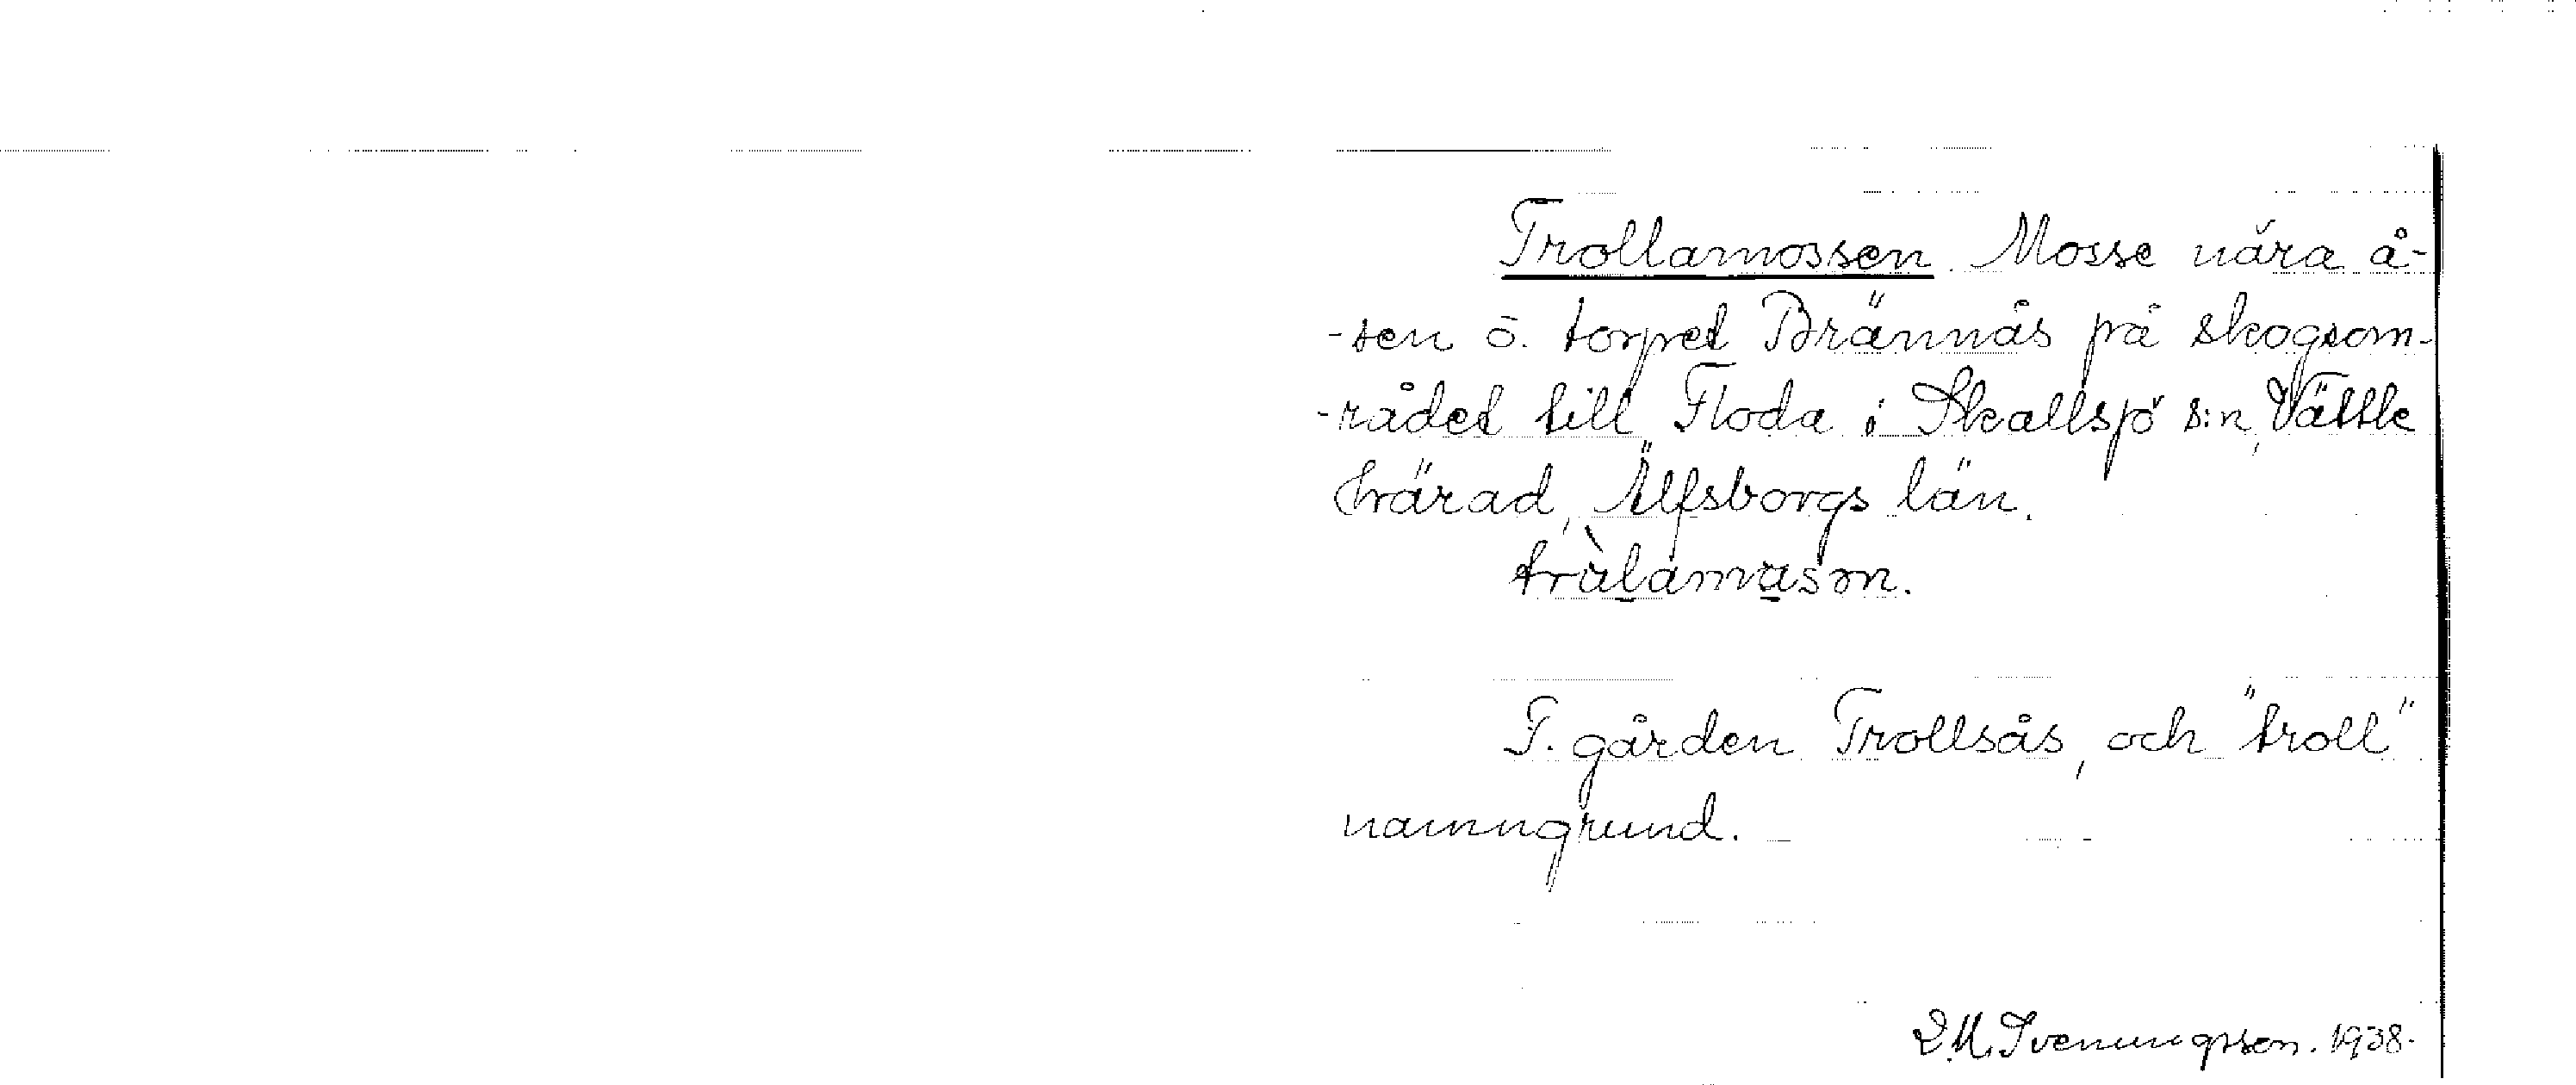 Trollamossen. Mosse nära å-
-sen ö. torpet Brännås på skogsom-
-rådet till Floda i Skallsjö s:n, Vättle
härad, Älfsborgs län.
I. gården Trollsås, och "troll"
namngrund.
D.M. Svenungsson. 1938.